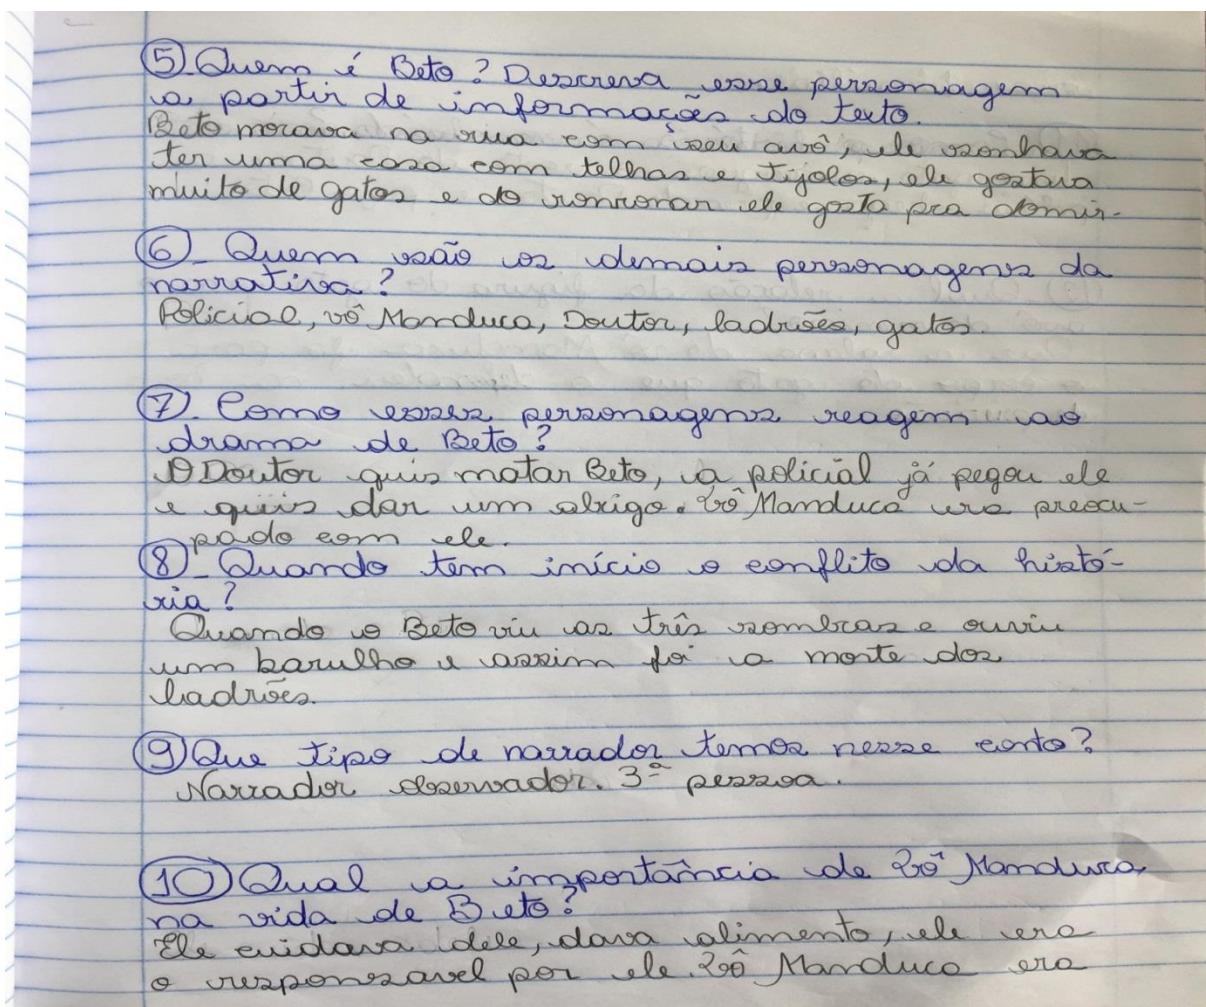 5) Quem é Beto? Descreva esse personagem
a partir de informações do texto.
Beto morava na rua com seu avô, ele sonhava
ter uma casa com telhas e tijolos, ele gostava
muito de gatos e do ronronar ele gosta pra dormir.
6)_ Quem são os demais personagens da
narrativa?
Policial, vô Manduca, Doutor, ladrões, gatos.
7). Como esses personagens reagem ao
drama de Beto?
O Doutor quis matar Beto, a policial já pegou ele
e quis dar um abrigo. Vô Manduca era preocu-
pado com ele.
8)_ Quando tem início o conflito da histó-
ria?
Quando o Beto viu as três sombras e ouviu
um barulho e assim foi a morte dos
ladrões.
9) Que tipo de narrador temos nesse conto?
Narrador observador. 3ª pessoa.
10) Qual a importância de Vô Manduca
na vida de Beto?
Ele cuidava dele, dava alimento, ele era
o responsavel por ele. Vô Manduca era